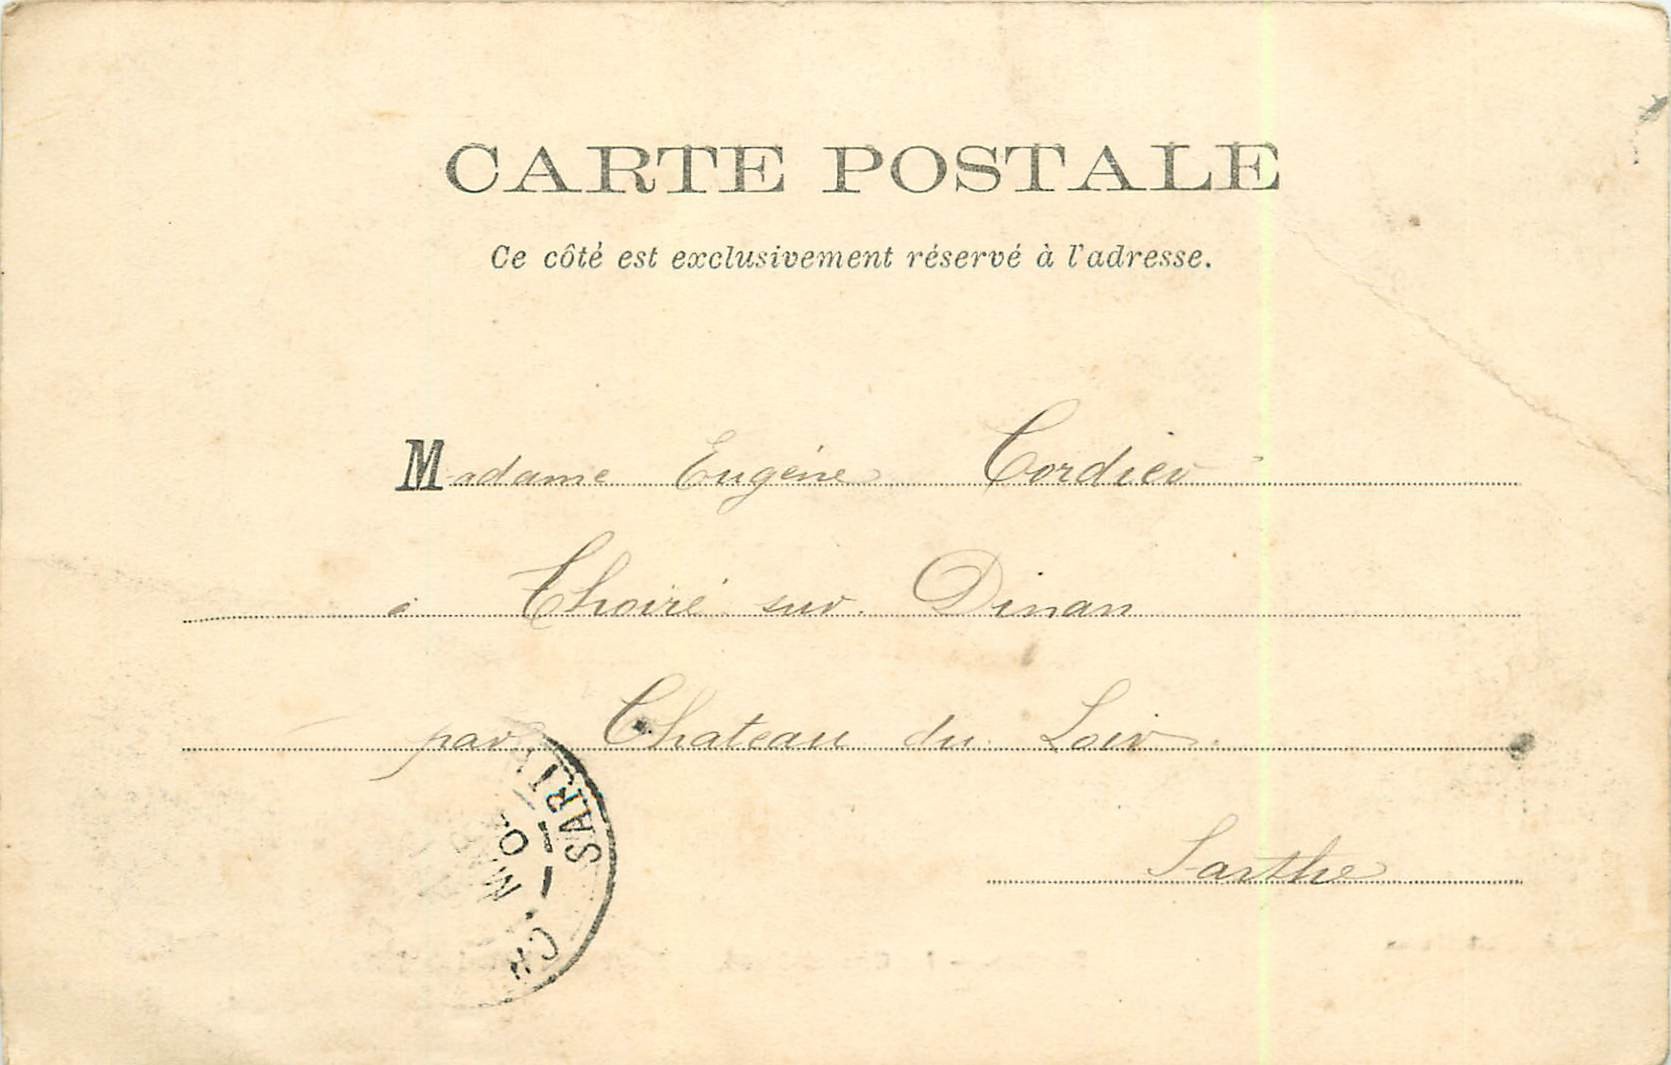 CARTE POSTALE
Ce côté est exclusivement réservé à l'adresse.
Madame Eugéne Cordier
à Thoiré sur Dinan
par Chateau du Loir
Sarthe
SART